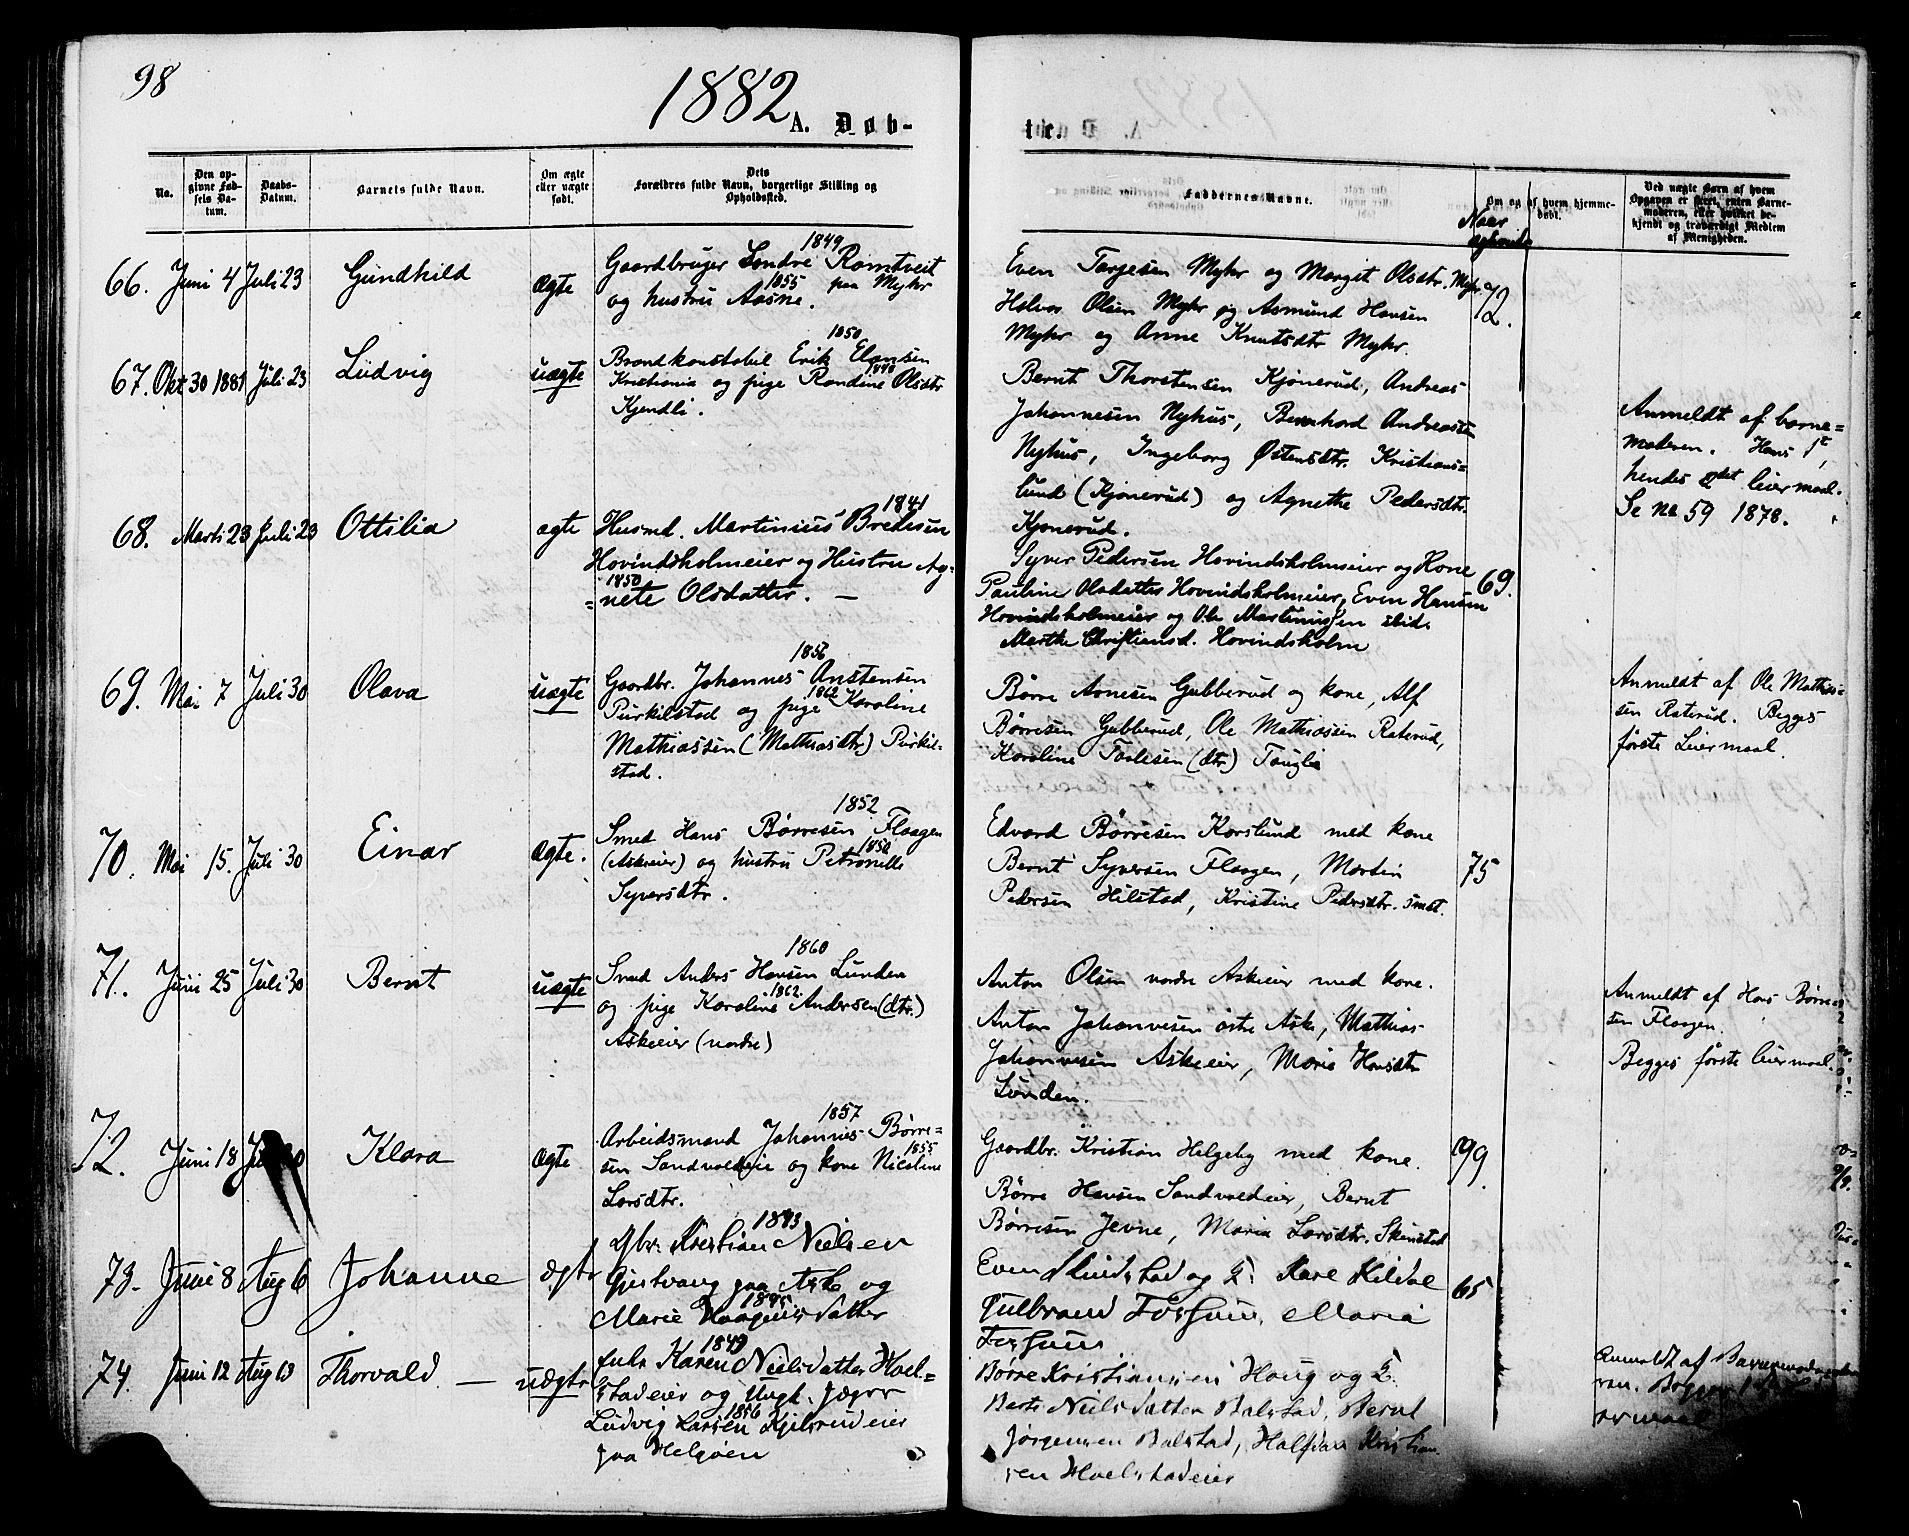 98
1882
A. Døb-
No.
Den op-
givne Fød-
sels Da-
tum.
Daabs-
Datum.
Barnets fulde Navn.
Om ægte
eller uægte
født.
Dets
Forældres fulde Navn, borgerlige Stilling og
Opholdssted.
66. Juni 4 Juli 23 Gundhild ægte
1849
Gaardbruger Søndre Romtveit
1855 paa Myhr
og hustru Aasne.
67. Okt 30 1881 Juli 23 Ludvig uægte
1850
Brandkonstabel Erik Elansen
1848
Kristiania og pige Randine Olsdtr
Kjendli.
68. Marts 23 Juli 23 Ottilia ægte
1841
Husmd. Martinius Bredesen
Hovindsholmeier og Hustru Ag-
1850
=nete Olsdatter. —
69. Mai 7 Juli 30 Olava uægte
1856
Gaardbr. Johannes Anstensen
1862
Purkilstad og pige Karoline
Mathiassen (Mathiasdtr) Purkil-
stad.
70. Mai 15. Juli 30 Einar ægte.
1852
Smed Hans Børresen Flaagen
1850
(Askeier) og hustru Petronelle
Syversdtr.
71. Juni 25 Juli 30 Bernt uægte
1860
Smed Anders Hansen Lunden
1862
og pige Karoline Andersen (dtr.)
Askeier (nordre)
72. Juni 18 Juli 30 Klara ægte
1857
Arbeidsmand Johannes Børre-
1855
sen Sandvoldeie og kone Nicoline
Larsdtr.
73. Juni 8 Aug 6 Johanne ægte
1843
Gbr. Kristian Nielsen
Gjestvang paa Ask og
1845
Marie Haagensdatter
74. Juni 12 Aug 13 Thorvald — uægte
1849
Enke Karen Nielsdatter Hoel-
stadeier og Ungk. Jæger
1856
Ludvig Larsen Kjelsrudeier
paa Helgøen
te.
Faddernes Navne.
Om og af hvem hjemme-
døbt.
Naar
ægteviede
Ved uægte Børn af hvem
Opgaven er skeet, enten Barne-
moderen, eller hvilket be-
kjendt og troværdigt Medlem
af Menigheden.
Even Torgesen Myhr og Margit Olsdtr. Myhr. 72.
Halvor Olsen Myhr og Asmund Hansen
Myhr og Anne Knutsdtr Myhr.
Bernt Thorstensen Kjønerud, Andreas
Johannesen Nyhus, Bernhard Andreassen
Nyhus, Ingeborg Østensdtr. Kristians-
lund (Kjønerud) og Agnethe Pedersdtr.
Kjønerud.
Anmeldt af barne=
moderen. Hans 1ste,
hendes 2det leiermaal.
Se No 59 1878.
Syver Pedersen Hovindsholmseier og Kone 69.
Pauline Olsdatter Hovindsholmeier, Even Hansen
Hovindsholmeier og Ole Martinussen ibid.
Marthe Christiansd. Hovindsholm
Børre Arnesen Gubberud og kone, Alf
Børresen Gubberud, Ole Mathiassen Raterud,
Karoline Paalesen (dtr)
Anmeldt af Ole Mathias-
sen Raterud. Begges
første Leiermaal.
Edvard Børresen Korslund med kone 75
Bernt Syversen Flaagen, Martin
Pedersen Hilstad, Kristine Pedersdtr. smst.
Anton Olsen nordre Askeier med kone.
Anton Johannesen østre Ask, Mathias
Johannesen Askeier, Maria Hansdtr
Lunden.
Anmeldt af Hans Børre-
sen Flaagen.
Begges første leiermaal.
Gaardbr. Kristian Helgeby med kone. 99.
Børre Hansen Sandvoldeier, Bernt
Børresen Jevne, Maria Larsdtr. Skinstad
Even Lindstad og K. Kare Kildal 65
Gulbrand Forshun, Maria
Forshuus
Børre Kristiansen Haug og K.
Berte Nielsdatter Balstad, Bernt
Jørgensen Balstad, Halfdan Kristian-
sen Hoelstadeier
Anmeldt af Barnemode-
ren. Begges 1ste
ermaal